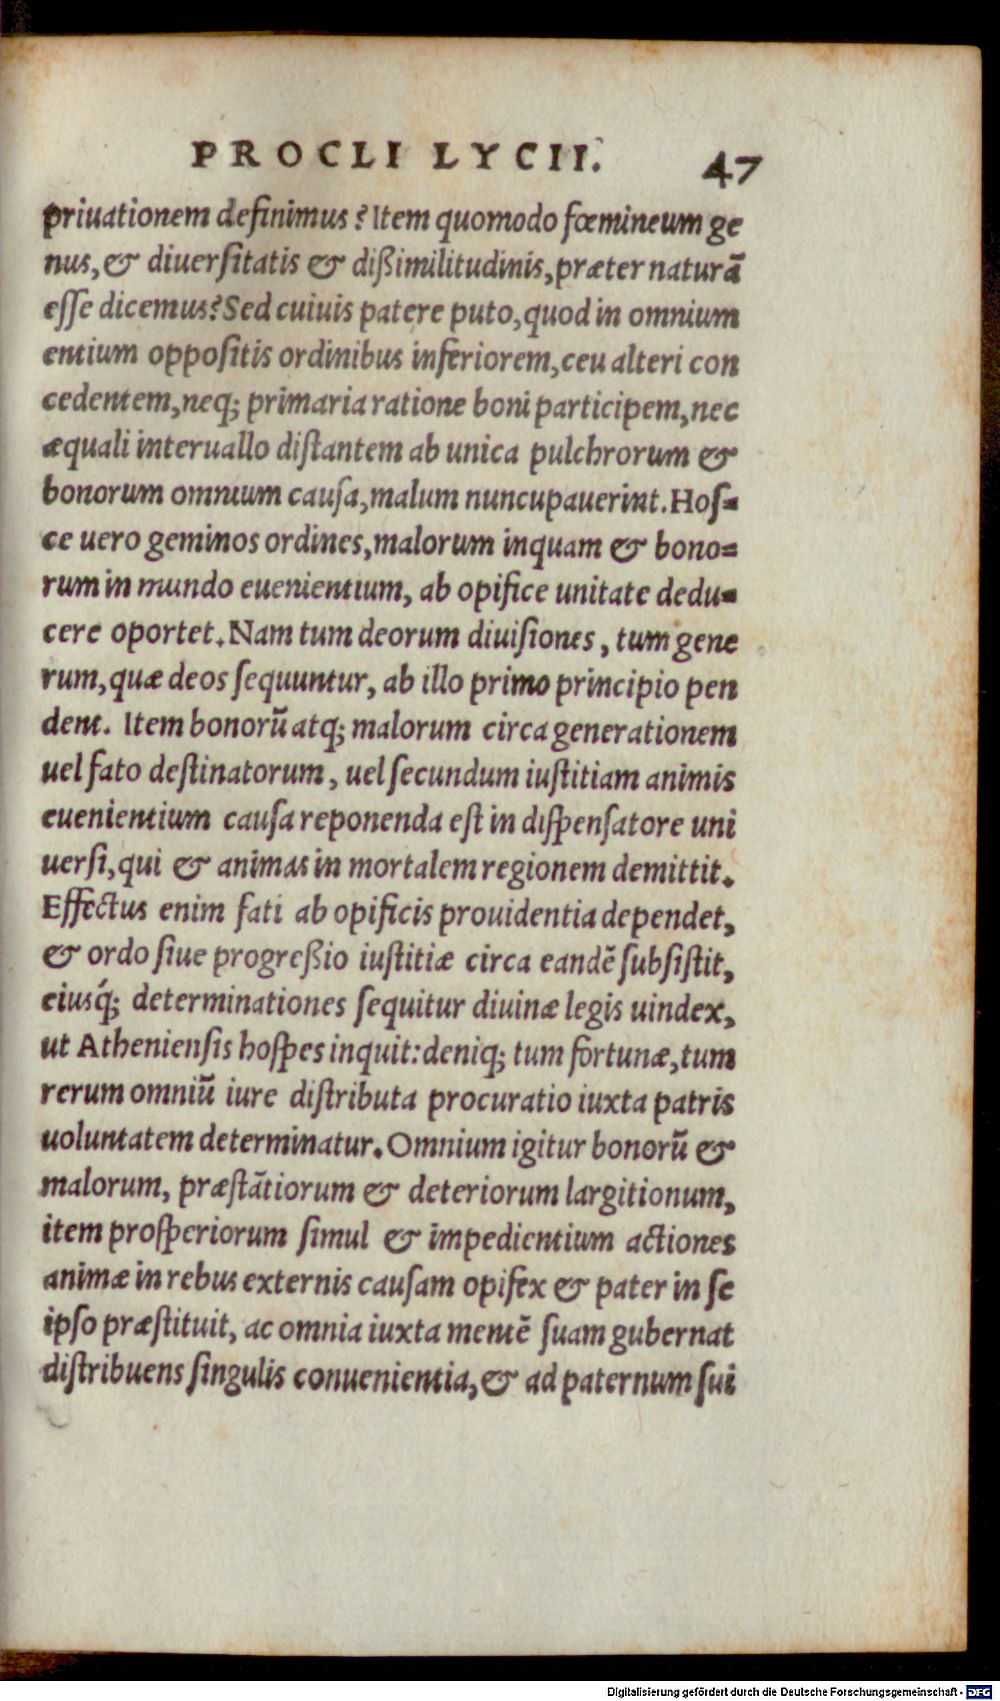 PROCLI LYCII. 47
priuationem definimus? Item quomodo fœmineum ge
nus, & diuerſitatis & dißimilitudinis, præter naturã
eſſe dicemus? Sed cuiuis patere puto, quod in omnium
entium oppoſitis ordinibus inferiorem, ceu alteri con
cedentem, neq; primaria ratione boni participem, nec
æquali interuallo diſtantem ab unica pulchrorum &
bonorum omnium cauſa, malum nuncupauerint. Hoſ=
ce uero geminos ordines, malorum inquam & bono=
rum in mundo euenientium, ab opifice unitate dedu=
cere oportet. Nam tum deorum diuiſiones, tum gene
rum, quæ deos ſequuntur, ab illo primo principio pen
dent. Item bonorũ atq; malorum circa generationem
uel fato deſtinatorum, uel ſecundum iuſtitiam animis
euenientium cauſa reponenda eſt in diſpenſatore uni
uerſi, qui & animas in mortalem regionem demittit.
Effectus enim fati ab opificis prouidentia dependet,
& ordo ſiue progreßio iuſtitiæ circa eandẽ ſubſiſtit,
eiusq́; determinationes ſequitur diuinæ legis uindex,
ut Athenienſis hoſpes inquit: deniq; tum fortunæ, tum
rerum omniũ iure diſtributa procuratio iuxta patris
uoluntatem determinatur. Omnium igitur bonorũ &
malorum, præſtãtiorum & deteriorum largitionum,
item proſperiorum ſimul & impedientium actiones
animæ in rebus externis cauſam opifex & pater in ſe
ipſo præſtituit, ac omnia iuxta mentẽ ſuam gubernat
diſtribuens ſingulis conuenientia, & ad paternum ſui
Digitalisierung gefördert durch die Deutsche Forschungsgemeinschaft - DFG